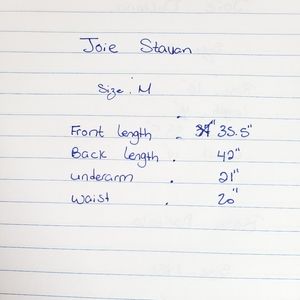 Joie Stavan
Size: M
Front length . 35.5"
Back length . 42"
underarm . 21"
waist . 20"